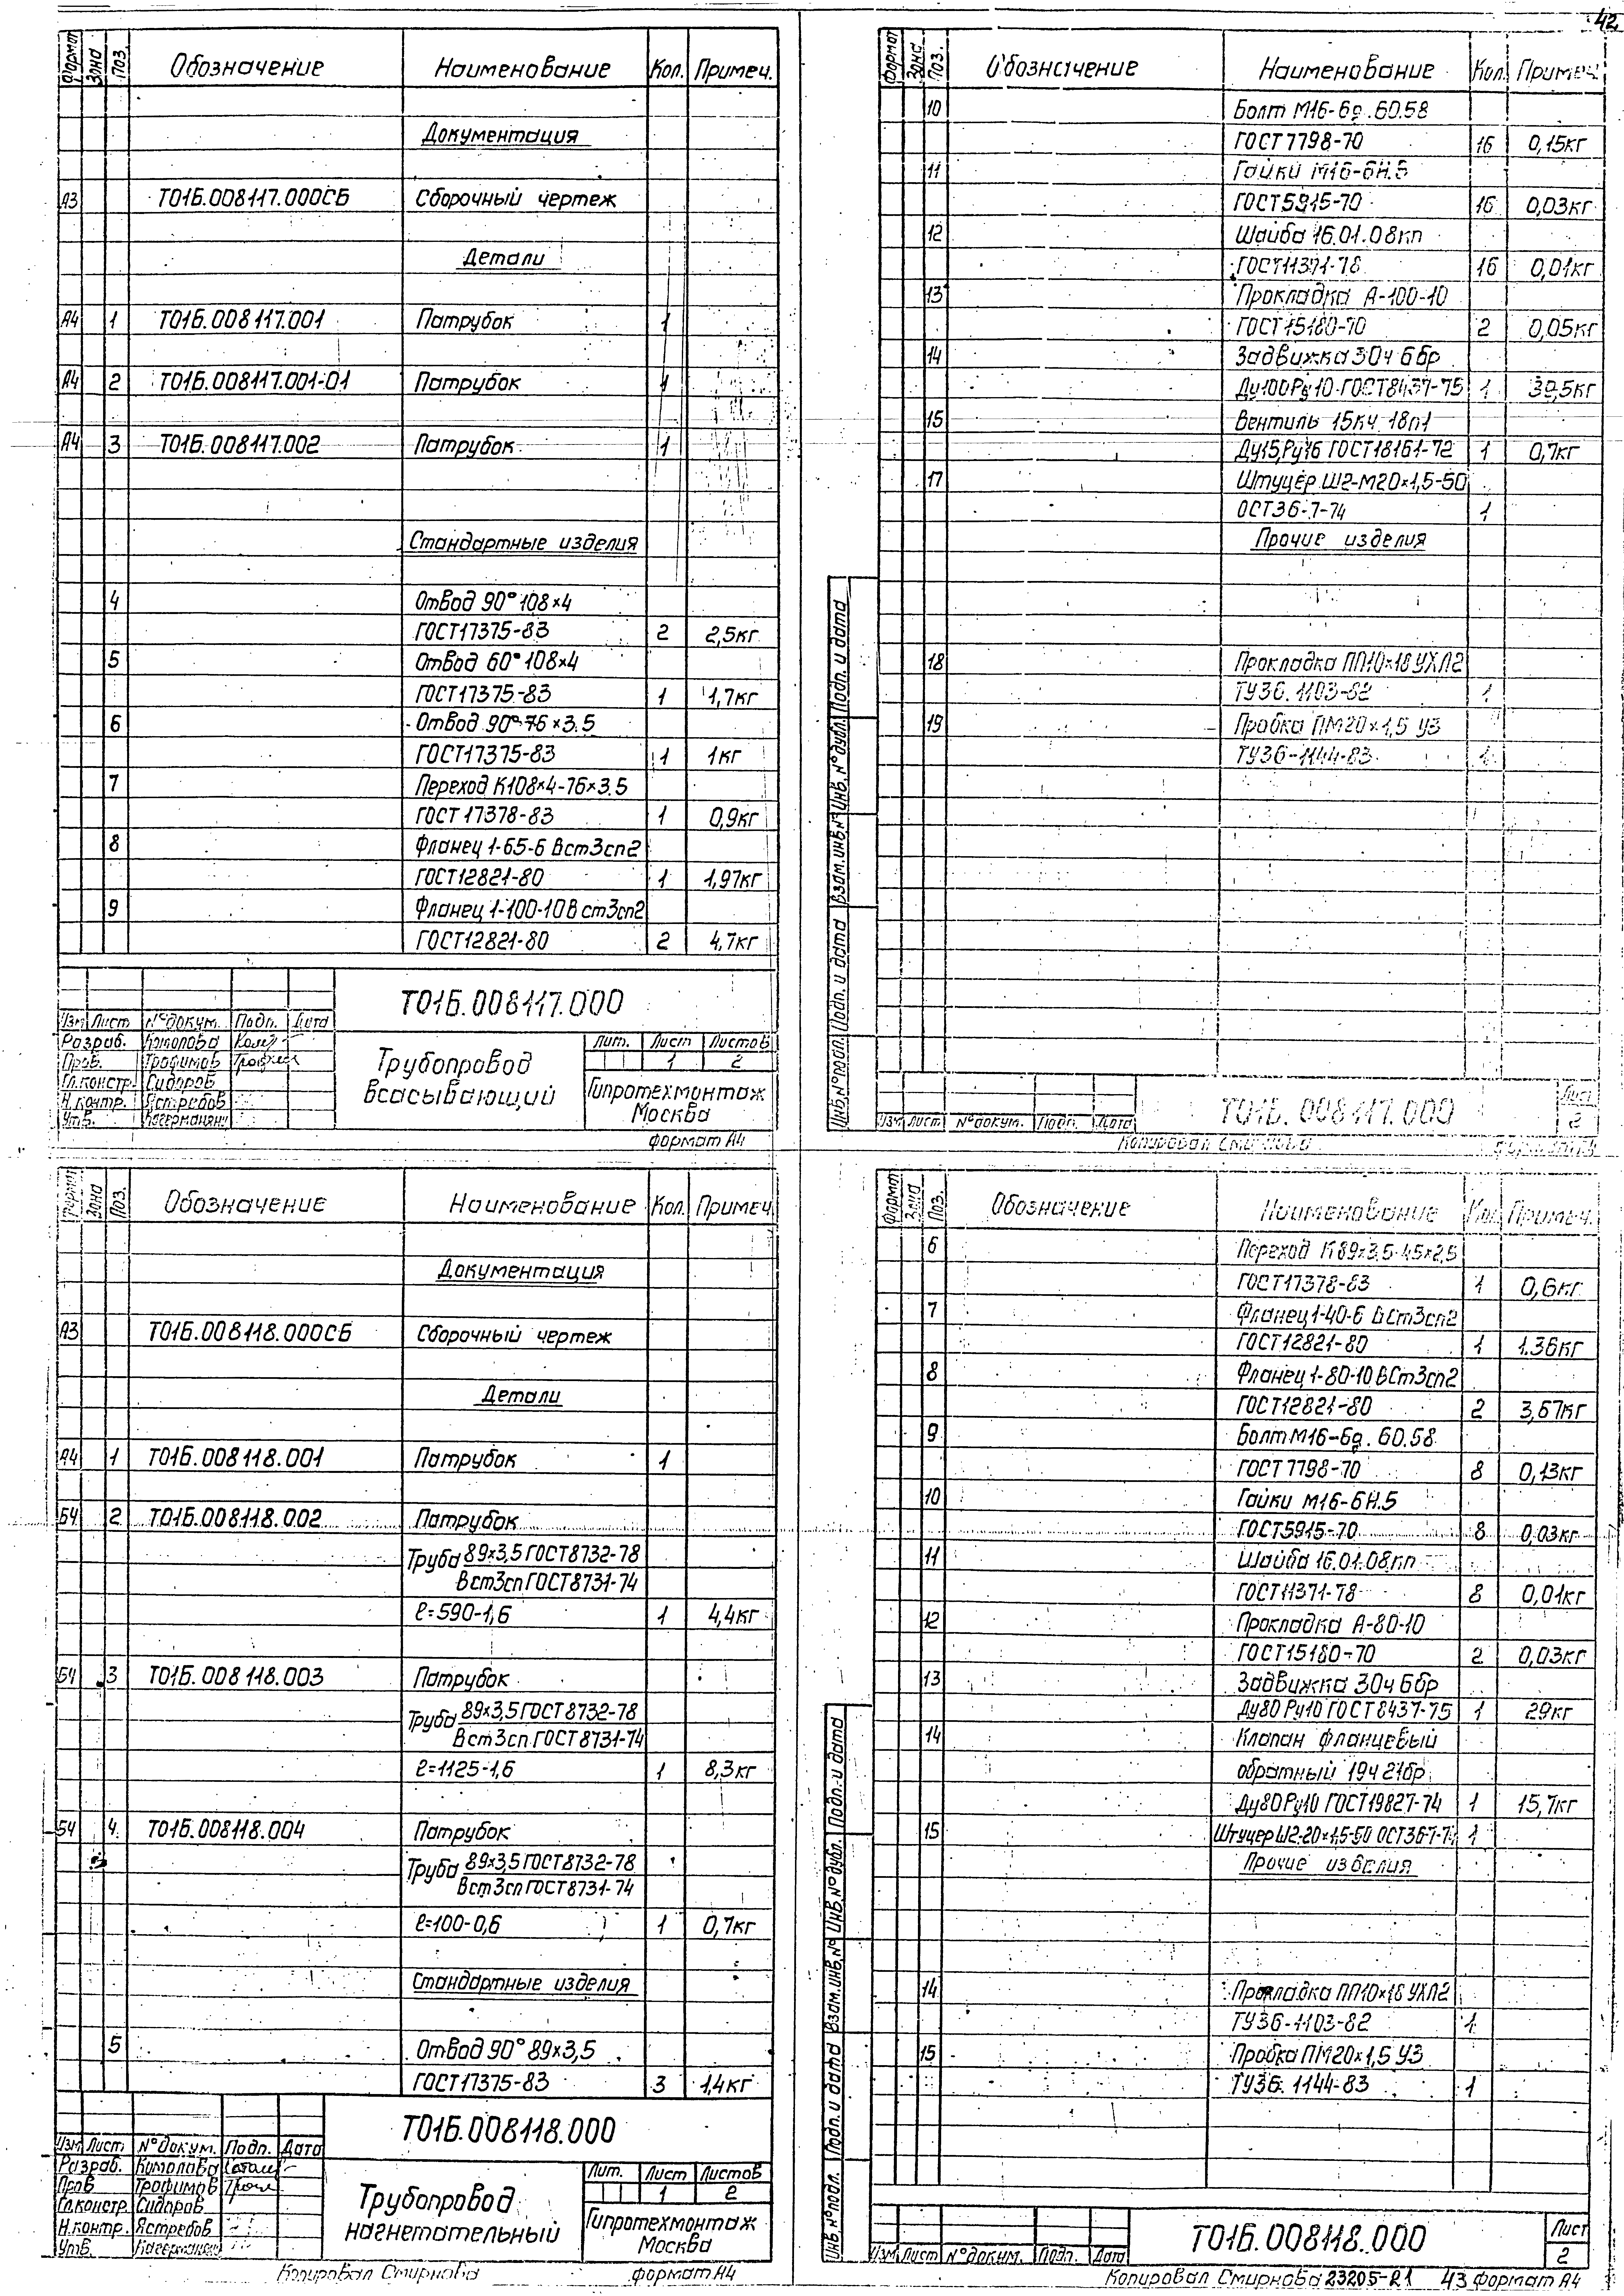 42
Формат Зона Поз. Обозначение Наименование Кол. Примеч.
Документация
А3 Т01Б.008117.000СБ Сборочный чертеж
Детали
А4 1 Т01Б.008117.001 Патрубок 1
А4 2 Т01Б.008117.001-01 Патрубок 1
А4 3 Т01Б.008117.002 Патрубок 1
Стандартные изделия
4 Отвод 90° 108×4
ГОСТ17375-83 2 2,5кг
5 Отвод 60° 108×4
ГОСТ17375-83 1 1,7кг
6 Отвод 90°-76×3.5
ГОСТ17375-83 1 1кг
7 Переход К108×4-76×3.5
ГОСТ 17378-83 1 0,9кг
8 Фланец 1-65-6 Вст3сп2
ГОСТ12821-80 1 1,97кг
9 Фланец 1-100-10Вст3сп2
ГОСТ12821-80 2 4,7кг
Т01Б.008117.000
Изм Лист № докум. Подп. Дата
Разраб. Комолова
Пров. Трофимов
Гл.констр. Сидоров
Н.контр. Ястребов
Утв.
Трубопровод
всасывающий
Лит. Лист Листов
1 2
Гипротехмонтаж
Москва
формат А4
Формат Зона Поз. Обозначение Наименование Кол. Примеч.
10 Болт М16-6g.60.58
ГОСТ 7798-70 16 0,15кг
11 Гайки М16-6Н.5
ГОСТ5915-70 16 0,03кг
12 Шайба 16.01.08кп
ГОСТ11371-78 16 0,01кг
13 Прокладка А-100-10
ГОСТ15180-70 2 0,05кг
14 Задвижка 30ч 6бр
Ду100Ру10 ГОСТ8437-75 1 39,5кг
15 Вентиль 15кч 18п1
Ду15,Ру16 ГОСТ18161-72 1 0,7кг
17 Штуцер Ш2-М20×1,5-50
ОСТ36-7-74 1
Прочие изделия
18 Прокладка ПП10×18 УХЛ2
ТУ36.1103-82 1
19 Пробка ПМ20×1,5 У3
ТУ36-1144-83 1
Инв.№подл. Подп. и дата Взам.инв.№ Инв.№дубл. Подп. и дата
Изм Лист № докум. Подп. Дата
Т01Б.008117.000
Лист
2
Копировал Смирнова
Формат Зона Поз. Обозначение Наименование Кол. Примеч.
Документация
А3 Т01Б.008118.000СБ Сборочный чертеж
Детали
А4 1 Т01Б.008118.001 Патрубок 1
Б4 2 Т01Б.008118.002 Патрубок
Труба 89×3,5 ГОСТ8732-78
Вст3сп ГОСТ8731-74
ℓ=590-1,6 1 4,4кг
Б4 3 Т01Б.008118.003 Патрубок
Труба 89×3,5 ГОСТ8732-78
Вст3сп ГОСТ8731-74
ℓ=1125-1,6 1 8,3кг
Б4 4 Т01Б.008118.004 Патрубок
Труба 89×3,5 ГОСТ8732-78
Вст3сп ГОСТ8731-74
ℓ=100-0,6 1 0,7кг
Стандартные изделия
5 Отвод 90° 89×3,5
ГОСТ17375-83 3 1,4кг
Т01Б.008118.000
Изм Лист № докум. Подп. Дата
Разраб. Комолова
Пров Трофимов
Гл.констр. Сидоров
Н.контр. Ястребов
Утв.
Трубопровод
нагнетательный
Лит. Лист Листов
1 2
Гипротехмонтаж
Москва
Копировал Смирнова формат А4
Формат Зона Поз. Обозначение Наименование Кол. Примеч.
6 Переход К89×3,5-45×2,5
ГОСТ17378-83 1 0,6кг
7 Фланец 1-40-6 ВСт3сп2
ГОСТ12821-80 1 1.36кг
8 Фланец 1-80-10 ВСт3сп2
ГОСТ12821-80 2 3,67кг
9 Болт М16-6g.60.58
ГОСТ 7798-70 8 0,13кг
10 Гайки М16-6Н.5
ГОСТ5915-70 8 0,03кг
11 Шайба 16.01.08кп
ГОСТ11371-78 8 0,01кг
12 Прокладка А-80-10
ГОСТ15180-70 2 0,03кг
13 Задвижка 30ч 6бр
Ду80 Ру10 ГОСТ8437-75 1 29кг
14 Клапан фланцевый
обратный 19ч 21бр
Ду80Ру10 ГОСТ19827-74 1 15,7кг
15 Штуцер Ш2-20×1,5-50 ОСТ36-7-74 1
Прочие изделия
14 Прокладка ПП10×18 УХЛ2
ТУ36-1103-82 1
15 Пробка ПМ20×1,5 У3
ТУ36.1144-83 1
Инв.№подл. Подп. и дата Взам.инв.№ Инв.№дубл. Подп. и дата
Изм Лист № докум. Подп. Дата
Т01Б.008118.000
Лист
2
Копировал Смирнова 23205-21 43 формат А4